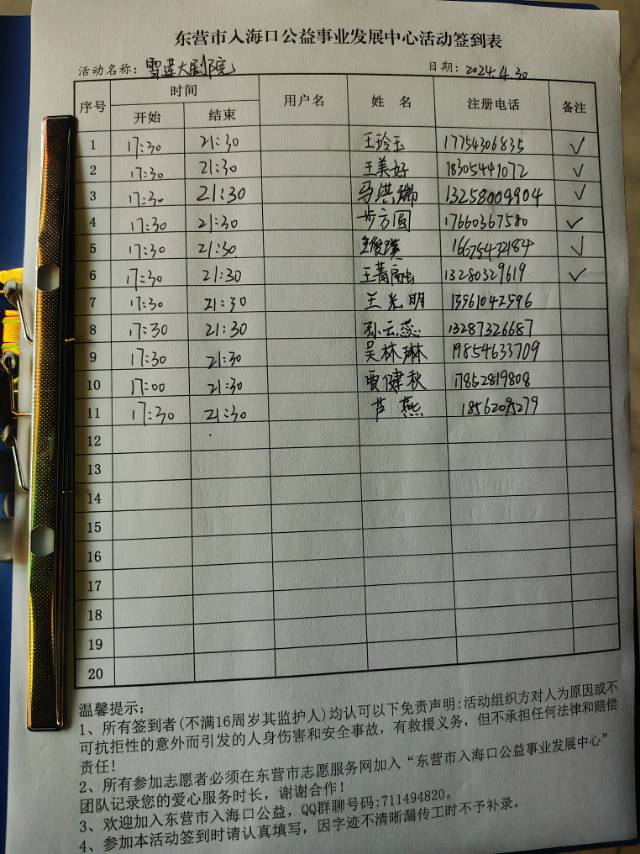 东营市入海口公益事业发展中心活动签到表
活动名称：雪莲大剧院 日期：2024.4.30
序号 时间 用户名 姓 名 注册电话 备注
开始 结束
1 17:30 21:30 王玲玉 17754306835 ✓
2 17:30 21:30 王美好 18305441072 ✓
3 17:30 21:30 马洪瑞 13258009904 ✓
4 17:30 21:30 步方圆 17660367580 ✓
5 17:30 21:30 16675422184 ✓
6 17:30 21:30 13280329619 ✓
7 17:30 21:30 王光明 13961042596
8 17:30 21:30 孙云蕊 13287326687
9 17:30 21:30 吴林琳 19854633709
10 17:00 21:30 贾健秋 17852819808
11 17:30 21:30 芦燕 18562095279
12
13
14
15
16
17
18
19
20
温馨提示：
1、所有签到者(不满16周岁其监护人)均认可以下免责声明:活动组织方对人为原因或不
可抗拒性的意外而引发的人身伤害和安全事故，有救援义务，但不承担任何法律和赔偿
责任！
2、所有参加志愿者必须在东营市志愿服务网加入“东营市入海口公益事业发展中心”
团队记录您的爱心服务时长，谢谢合作！
3、欢迎加入东营市入海口公益，QQ群聊号码:711494820。
4、参加本活动签到时请认真填写，因字迹不清晰漏传工时不予补录。